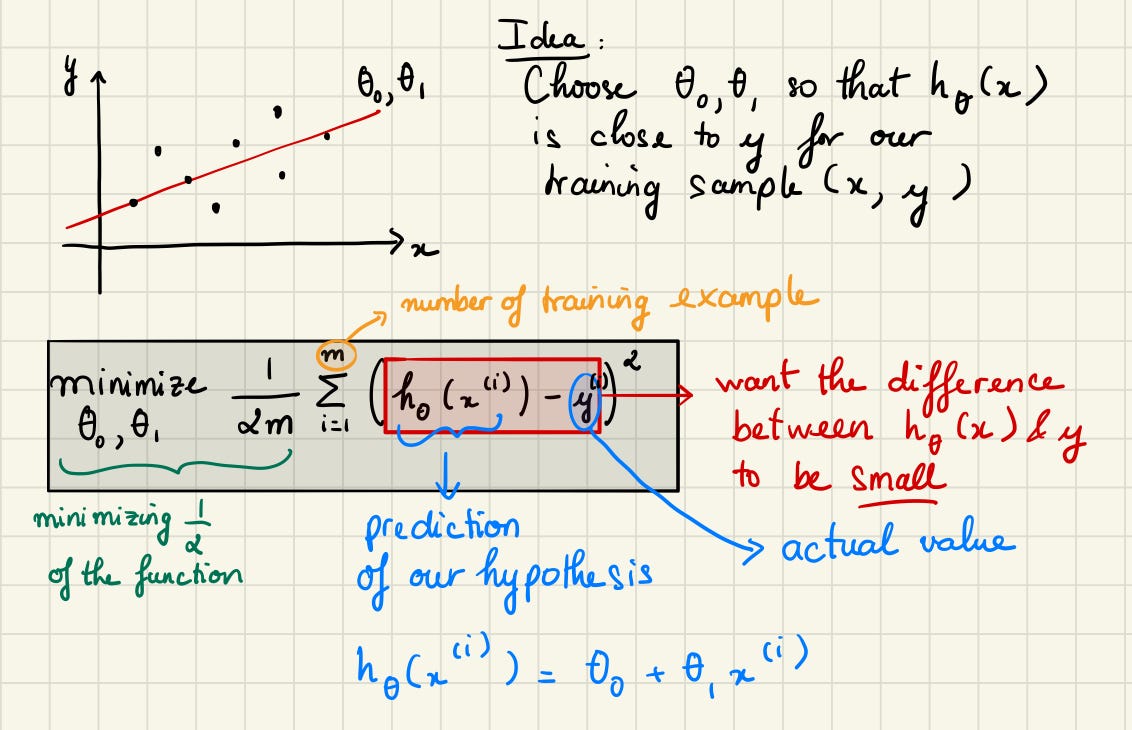 Idea :
Choose θ₀, θ₁ so that h_θ(x)
is close to y for our
training sample (x, y)
y
θ₀, θ₁
x
number of training example
minimize 1/2m m Σ i=1 (h_θ(x⁽ⁱ⁾) - y⁽ⁱ⁾)²
θ₀, θ₁
want the difference
between h_θ(x) & y
to be small
minimizing 1/2
of the function
prediction
of our hypothesis
actual value
h_θ(x⁽ⁱ⁾) = θ₀ + θ₁ x⁽ⁱ⁾